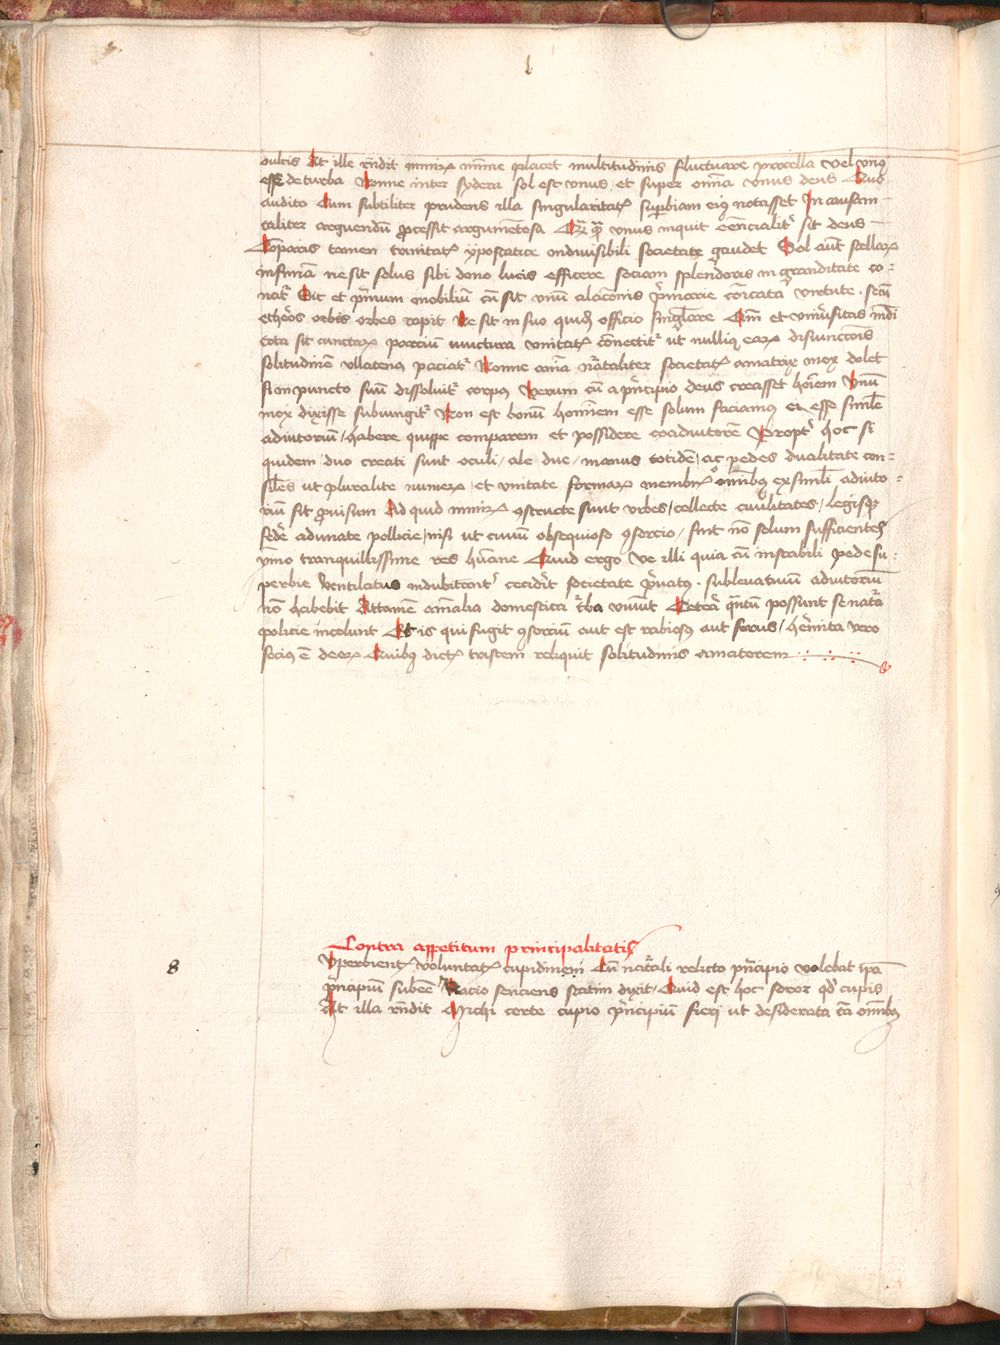 vultis At ille rñdit nimirꝝ minime placet multitudinis fluctuare procella vel vnus
esse de turba Nonne inter sydera sol est vnus et super omnia vnus deus Quo
audito Cum subtiliter prudens illa singularitatꝭ superbiam eiꝰ notasset In causam
taliter arguendũ processit argumẽtosa Quia vnus inquit eẽncialitʳ sit deus
Comparis tamen trinitatꝭ ypostatice indiuisibili societate gaudet Sol aũt stellarꝝ
infimã ne sit solus sibi dono lucis efficere sociam splendoris in granditate co-
natʳ Sic et primum mobiliũ cũ sit vnũ virtute secũ
ethereos orbis orbes rapit Ne sit in suo quidẽ officio singlare Qm̃ et vniũsitas mũdi
tota sit cunctarꝝ parcium iunctura vnitatꝭ connectitʳ ut nulliꝰ earꝝ disiunctõnis
solitudinẽ vllatenus paciatʳ Nonne omnia nãtaliter societatꝭ amatrix mox dolet
si in puncto suũ dissoluitʳ corpus Verum cũ a prĩcipio deus creasset hoĩem Vnũ
mox dixisse subiungitʳ Non est bonũ hominem esse solum faciamus ei esse simile
adiutoriũ habere quippe comparem et possidere coadiutorẽ Proptʳ hoc si
quidem duo creati sunt oculi ale due manus totidẽ ac pedes dualitate con-
siles ut pluralite numerꝝ et vnitate formarꝝ membrꝭ omnibꝰ ex simili adiuto-
riũ sit prouisum Ad quid nimirꝝ ꝯstructe sunt vrbes collecte ciuilitates legisqꝫ
federe adunate pollicie nisi ut ciuiũ obsequioso ꝯsorcio sint nõ solum sufficientes
ymo tranquillissime res hũane Quid ergo Ve illi quia cũ instabili pede su-
perbie ventilatus indubitantʳ cecidʳit societate priuatꝰ subleuatiuũ adiutoriũ
nõ habebit Attamẽ aĩmalia domestica tʳba viuũt Cetera quantũ possunt se natʳa
policie incolunt Et is qui fugit ꝯsorciũ aut est rabiosꝰ aut ferus heremita vero
sociꝰ ẽ deorꝝ Quibꝰ dictꝭ tristem reliquit solitudinis amatorem
8
Contra appetitum principalitatis
Vperbientꝭ voluntatꝭ cupidinem Cũ nãtali relicto principio volebat ipã
principiũ subeẽ Racio senciens statim dixit Quid est hoc soror qd̃ cupis
At illa rñdit Michi certe cupio principiũ fieri ut desiderata tã omnibꝰ